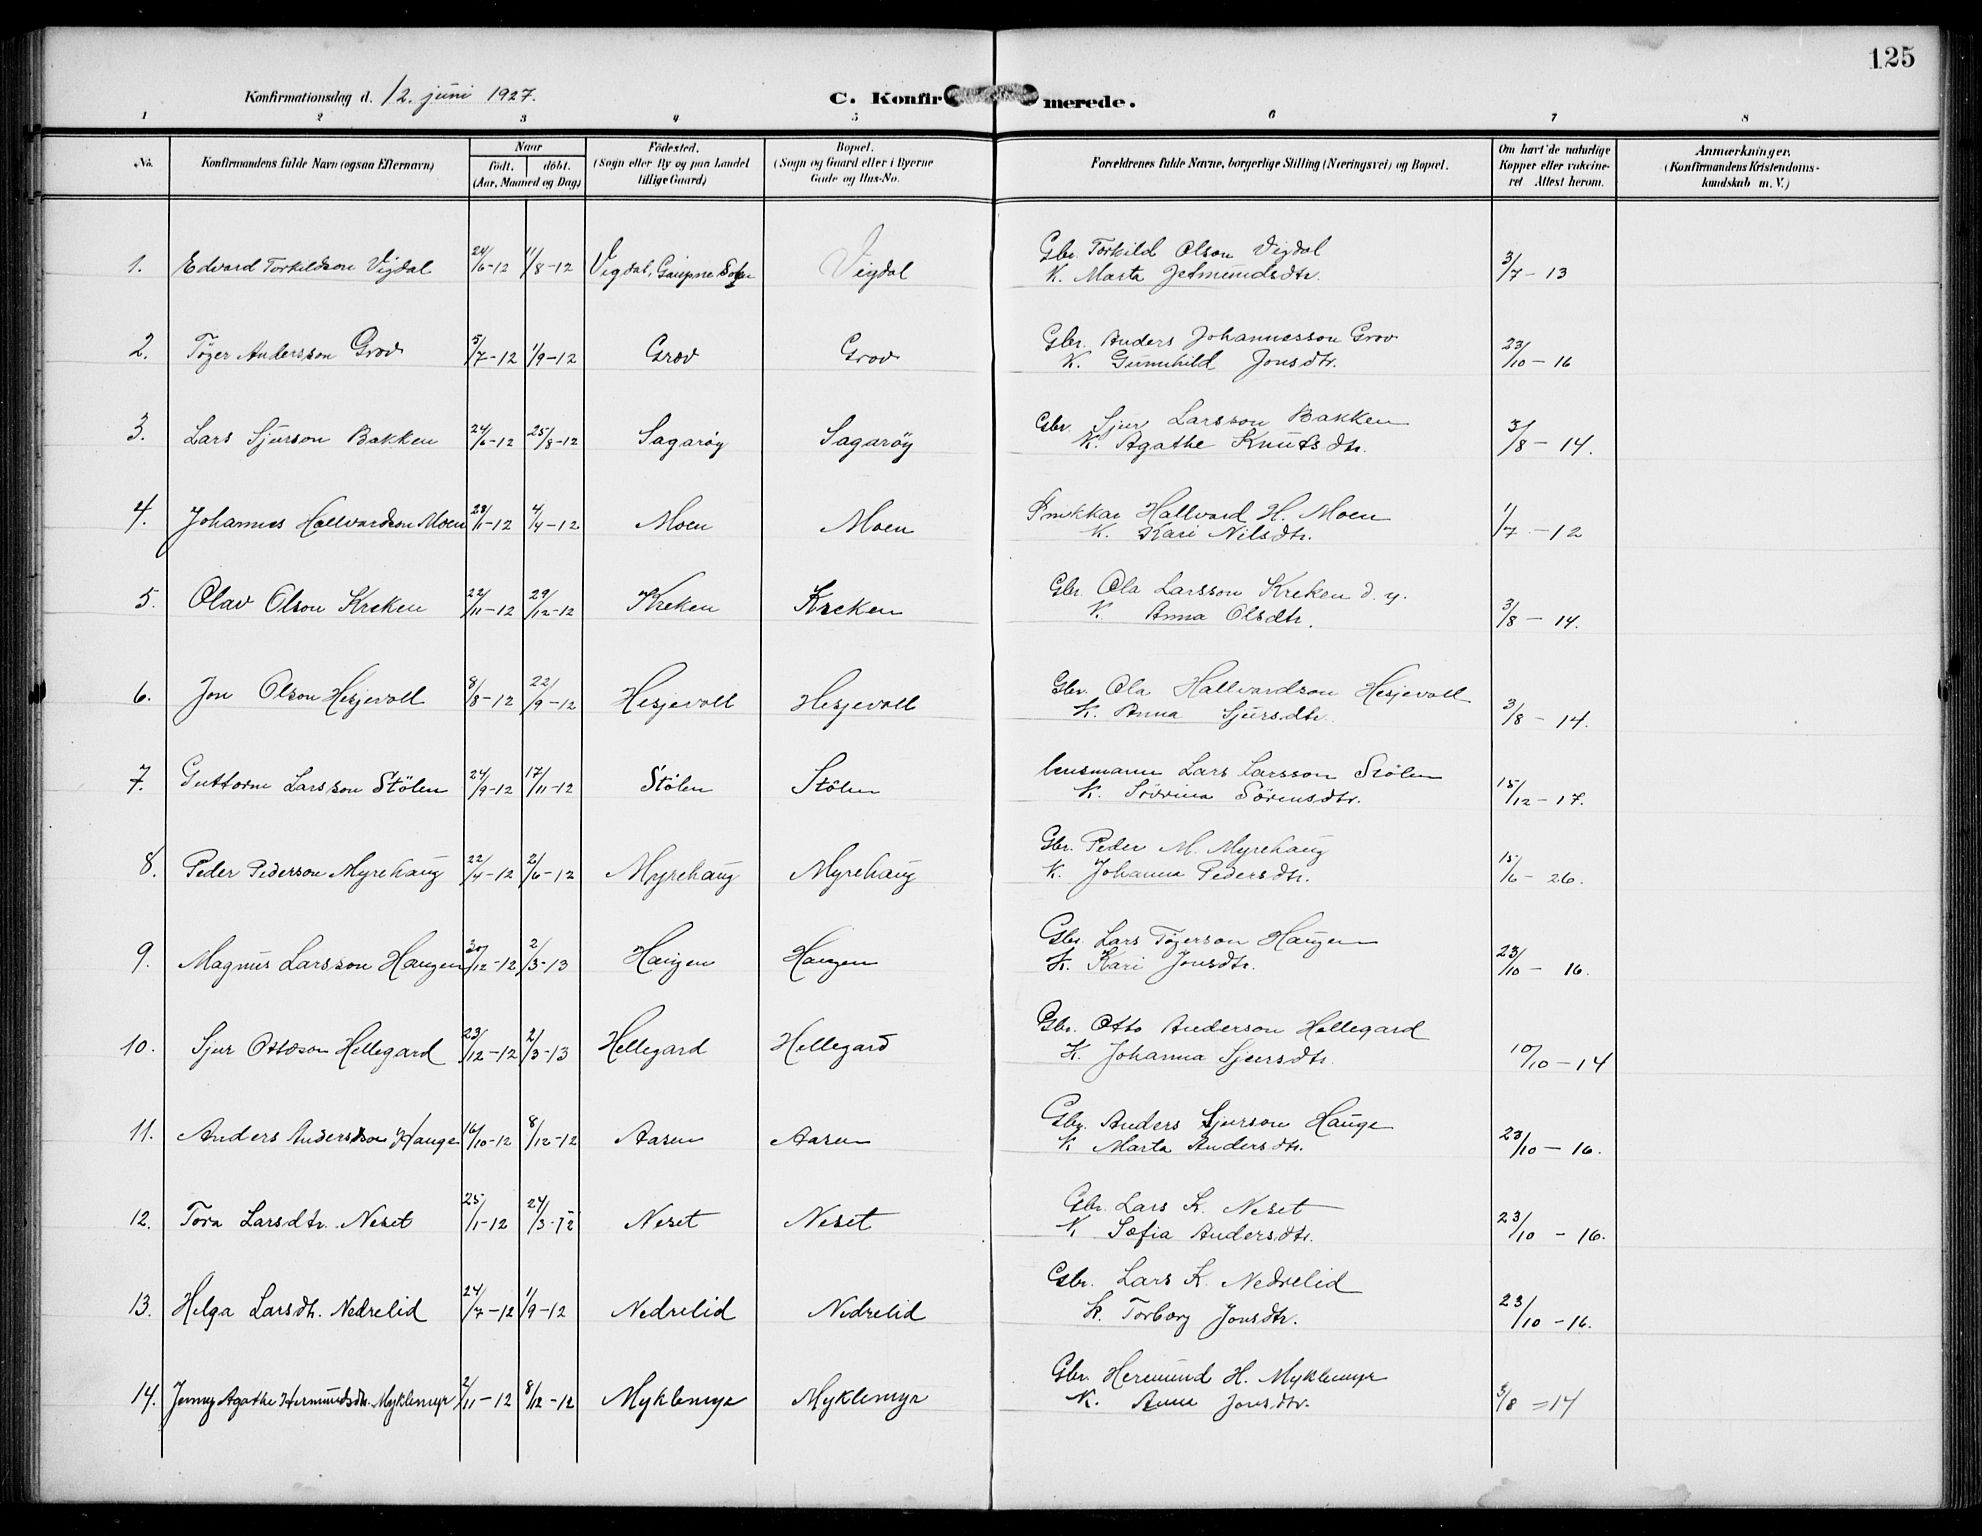 125
Konfirmationsdag d. 12. juni 1927. C. Konfirmerede.
1 2 3 4 5 6 7 8
No. Konfirmandens fulde Navn (ogsaa Efternavn) Naar født. døbt. (Aar, Maaned og Dag) Fødested. (Sogn eller By og paa Landet tillige Gaard) Bopæl. (Sogn og Gaard eller i Byerne Gade og Hus-No. Forældrenes fulde Navne, borgerlige Stilling (Næringsvei) og Bopæl. Om havt de naturlige Kopper eller vakcineret Attest herom. Anmærkninger. (Konfirmandens Kristendomskundskab m. V.)
1. Edvard Torkildson Vigdal 24/6-12 11/8-12 Vigdal, Gaupne Sokn Vigdal Gbr. Torkild Olson Vigdal
K. Marta Jetmundsdtr. 3/7-13
2. Tøger Andersson Grov 5/7-12 1/9-12 Grov Grov Gbr. Anders Johannesson Grov
K. Gunnhild Jonsdtr. 23/10-16
3. Lars Sjurson Bakken 24/6-12 25/8-12 Sagarøy Sagarøy Gbr. Sjur Larsson Bakken
K. Agathe Knutsdtr. 3/8-14.
4. Johannes Hallvardson Moen 28/1-12 4/4-12 Moen Moen Snikkar Hallvard H. Moen
K. Kari Nilsdtr. 1/7-12
5. Olav Olson Kreken 22/11-12 29/12-12 Kreken Kreken Gbr. Ola Larsson Kreken d. y.
K. Anna Olsdtr. 3/8-14.
6. Jon Olson Hesjevoll 8/8-12 22/9-12 Hesjevoll Hesjevoll Gbr. Ola Hallvardson Hesjevoll
K. Anna Sjursdtr. 3/8-14.
7. Guttorm Larsson Stølen 24/9-12 17/11-12 Stølen Stølen Lensmann Lars Larsson Stølen
K. Søvrina Sørensdtr. 15/12-17.
8. Peder Pederson Myrehaug 22/4-12 2/6-12 Myrehaug Myrehaug Gbr. Peder M. Myrehaug
K. Johanna Pedersdtr. 15/6-26.
9. Magnus Larsson Haugen 30/12-12 2/3-13 Haugen Haugen Gbr. Lars Tøgerson Haugen
K. Kari Jonsdtr. 23/10-16.
10. Sjur Ottoson Hellegard 23/12-12 2/3-13 Hellegard Hellegard Gbr. Otto Anderson Hellegard
K. Johanna Sjursdtr. 10/10-14
11. Anders Andersson Hauge 16/10-12 8/12-12 Aasen Aasen Gbr. Anders Sjurson Hauge
K Marta Andersdtr. 23/10-16.
12. Tora Larsdtr. Neset 25/1-12 24/3-12 Neset Neset Gbr. Lars K. Neset
K Sofia Andersdtr. 23/10-16.
13. Helga Larsdtr. Nedrelid 24/7-12 1/9-12 Nedrelid Nedrelid Gbr. Lars K. Nedrelid
K. Torborg Jonsdtr. 23/10-16.
14. Jenny Agathe Hermundsdtr. Myklemyr 2/11-12 8/12-12 Myklemyr Myklemyr Gbr. Hermund H. Myklemyr
K. Anna Jonsdtr. 3/8=14